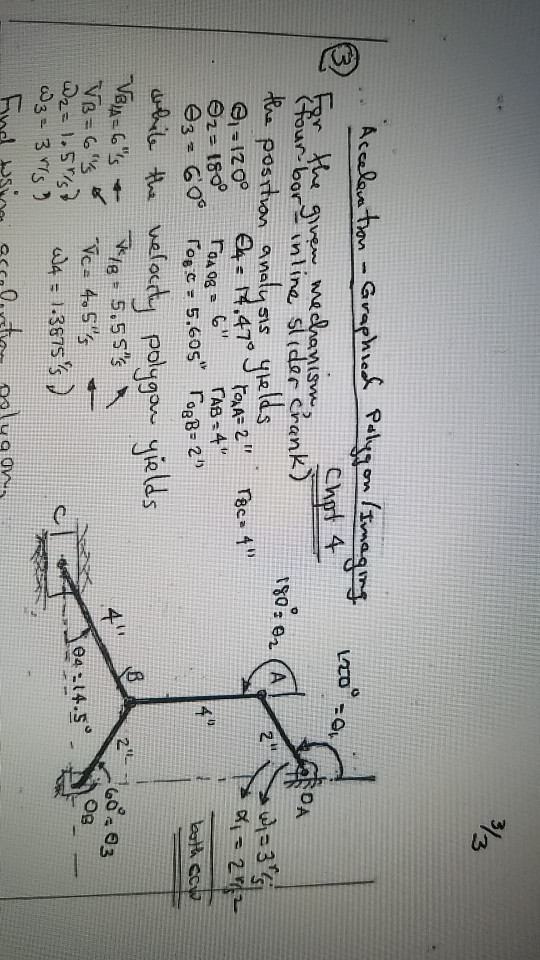 3/3
Acceleration - Graphical Polygon/Imaging
③ For the given mechanism, Chpt 4
(four-bar - inline slider crank)
the position analysis yields
θ1 = 120° θ4 = 14.47° rOAA = 2" rBC = 4"
θ2 = 180° rOAOB = 6" rAB = 4"
θ3 = 60° rOBC = 5.605" rOBB = 2"
while the velocity polygon yields
VB/A = 6"/s ← VC/B = 5.55"/s
VB = 6"/s VC = 4.5"/s ←
ω2 = 1.5 r/s ω4 = 1.3875 r/s
ω3 = 3 r/s
Find using acceleration polygon,
120° = θ1
OA
180° = θ2
A
2"
ω1 = 3 r/s
α1 = 2 r/s2
both ccw
4"
B
4"
2"
60° = θ3
OB
θ4 = 14.5°
C